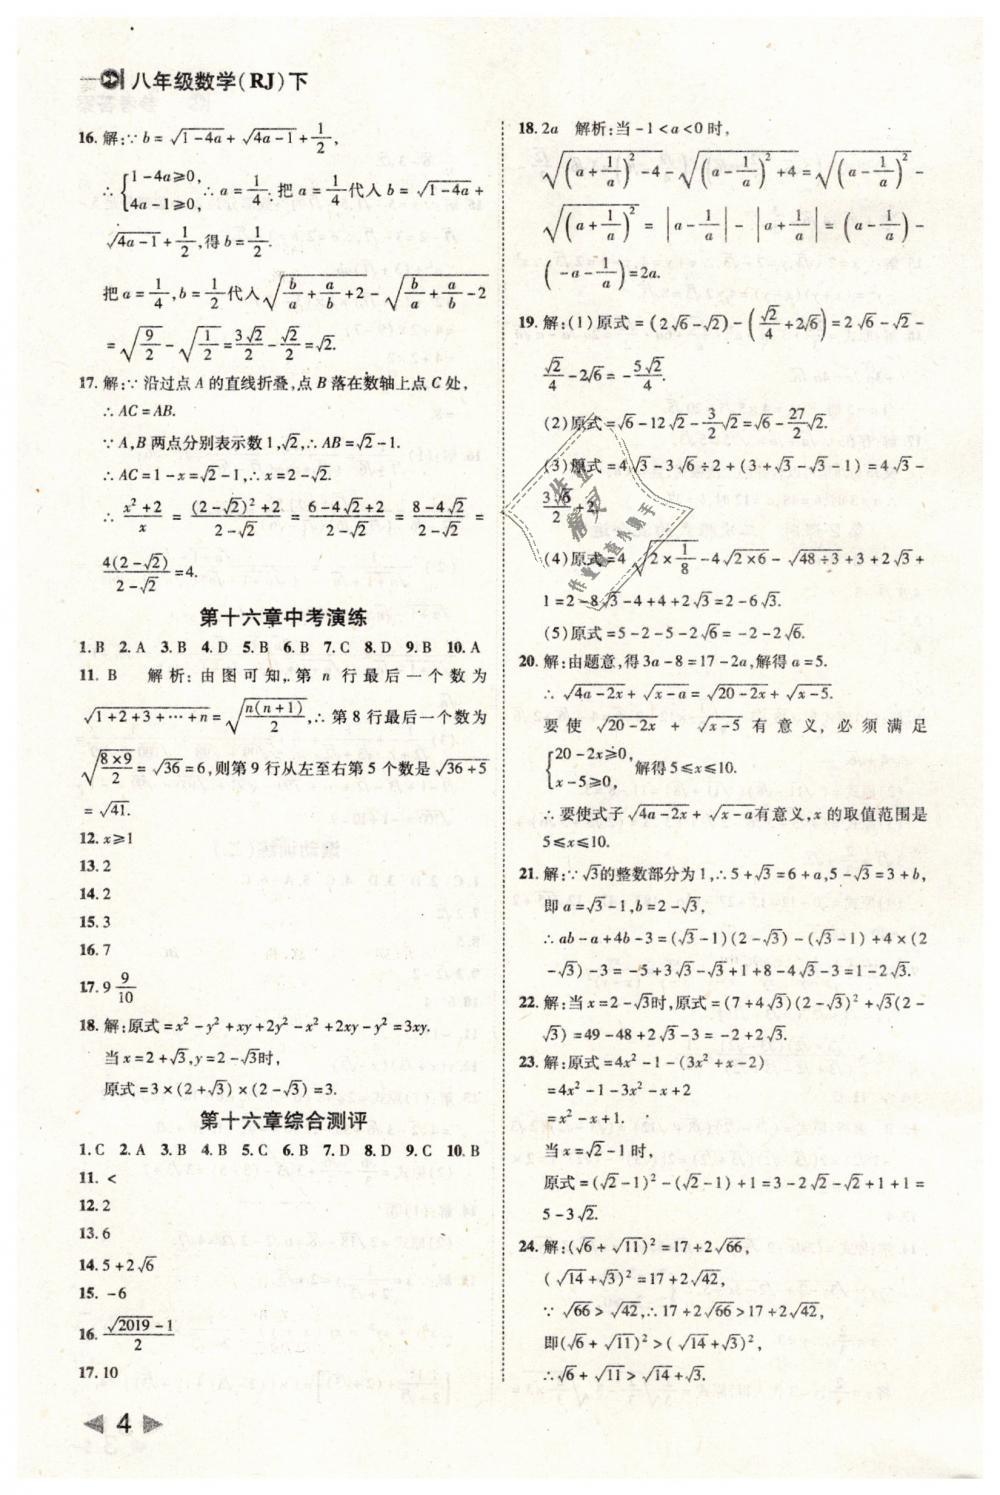 八年级数学(RJ)下
16. 解:∵b=√(1-4a)+√(4a-1)+1/2,
∴{1-4a≥0, 4a-1≥0, ∴a=1/4. 把a=1/4代入b=√(1-4a)+
√(4a-1)+1/2,得b=1/2.
把a=1/4,b=1/2代入√(b/a+a/b+2)-√(b/a+a/b-2)
=√(9/2)-√(1/2)=3√2/2-√2/2=√2.
17. 解:∵沿过点A的直线折叠,点B落在数轴上点C处,
∴AC=AB.
∵A,B两点分别表示数1,√2,∴AB=√2-1.
∴AC=1-x=√2-1,∴x=2-√2.
∴(x²+2)/x=((2-√2)²+2)/(2-√2)=(6-4√2+2)/(2-√2)=(8-4√2)/(2-√2)=
4(2-√2)/(2-√2)=4.
第十六章中考演练
1.B 2.A 3.B 4.D 5.B 6.B 7.C 8.D 9.B 10.A
11. B 解析:由图可知,第n行最后一个数为
√(1+2+3+⋯+n)=√(n(n+1)/2),∴第8行最后一个数为
√(8×9/2)=√36=6,则第9行从左至右第5个数是√(36+5)
=√41.
12. x≥1
13. 2
14. 2
15. 3
16. 7
17. 9 9/10
18. 解:原式=x²-y²+xy+2y²-x²+2xy-y²=3xy.
当x=2+√3,y=2-√3时,
原式=3×(2+√3)×(2-√3)=3.
第十六章综合测评
1.C 2.A 3.B 4.B 5.C 6.B 7.D 8.D 9.C 10.B
11. <
12. 2
13. 6
14. 5+2√6
15. -6
16. (√2019-1)/2
17. 10
18. 2a 解析:当-1<a<0时,
√((a+1/a)²-4)-√((a-1/a)²+4)=√((a-1/a)²)-
√((a+1/a)²)=|a-1/a|-|a+1/a|=(a-1/a)-
(-a-1/a)=2a.
19. 解:(1)原式=(2√6-√2)-(√2/4+2√6)=2√6-√2-
√2/4-2√6=-5√2/4.
(2)原式=√6-12√2-3/2√2=√6-27/2√2.
(3)原式=4√3-3√6÷2+(3+√3-√3-1)=4√3-
3√6/2+2.
(4)原式=4√(2×1/8)-4√(2×6)-√(48÷3)+3+2√3+
1=2-8√3-4+4+2√3=2-6√3.
(5)原式=5-2-5-2√6=-2-2√6.
20. 解:由题意,得3a-8=17-2a,解得a=5.
∴√(4a-2x)+√(x-a)=√(20-2x)+√(x-5).
要使√(20-2x)+√(x-5)有意义,必须满足
{20-2x≥0, x-5≥0, 解得5≤x≤10.
∴要使式子√(4a-2x)+√(x-a)有意义,x的取值范围是
5≤x≤10.
21. 解:∵√3的整数部分为1,∴5+√3=6+a,5-√3=3+b,
即a=√3-1,b=2-√3,
∴ab-a+4b-3=(√3-1)(2-√3)-(√3-1)+4×(2
-√3)-3=-5+3√3-√3+1+8-4√3-3=1-2√3.
22. 解:当x=2-√3时,原式=(7+4√3)(2-√3)²+√3(2-
√3)=49-48+2√3-3=-2+2√3.
23. 解:原式=4x²-1-(3x²+x-2)
=4x²-1-3x²-x+2
=x²-x+1.
当x=√2-1时,
原式=(√2-1)²-(√2-1)+1=3-2√2-√2+1+1=
5-3√2.
24. 解:(√6+√11)²=17+2√66,
(√14+√3)²=17+2√42,
∵√66>√42,∴17+2√66>17+2√42,
即(√6+√11)²>(√14+√3)²,
∴√6+√11>√14+√3.
4